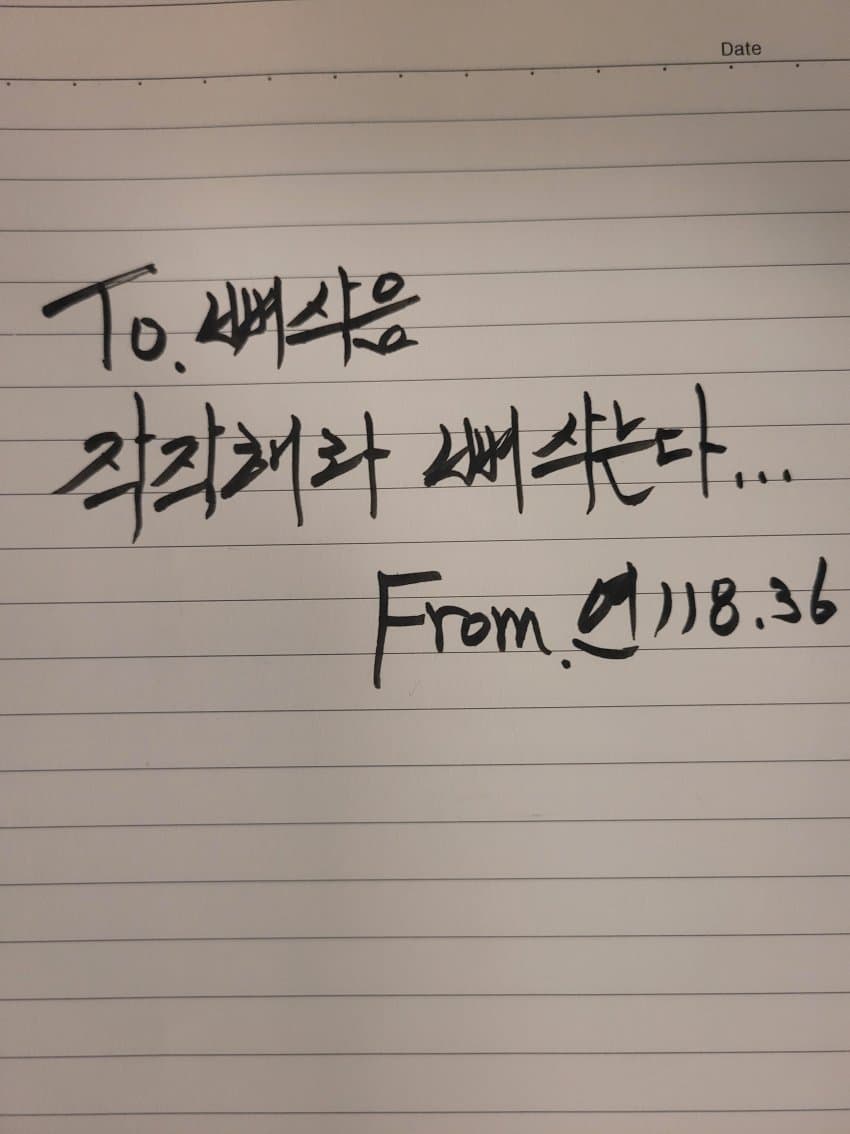 Date
To. 뻐삭음
작작해라 뻐삭는다...
From. 연118.36